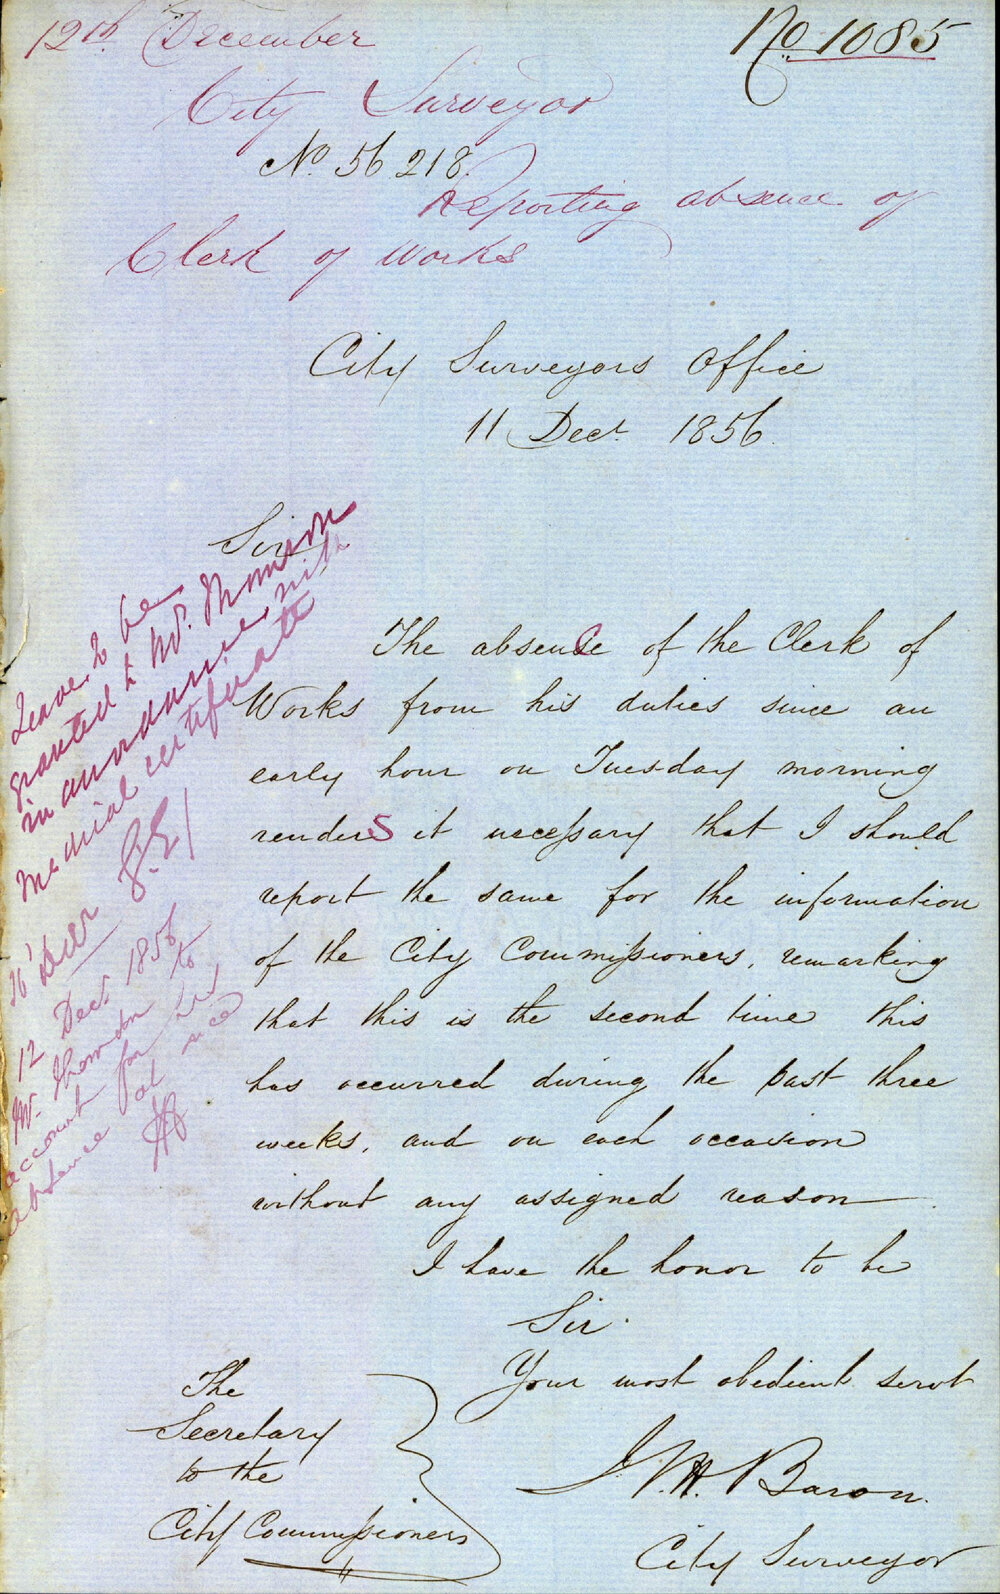 12th December
No 1085
City Surveyor
No. 56 218.
Reporting absence of
Clerk of Works
City Surveyors Office
11 Decr. 1856.
Sir
The absence of the Clerk of
Works from his duties since an
early hour on Tuesday morning
renders it necessary that I should
report the same for the information
of the City Commissioners, remarking
that this is the second time this
has occurred during the past three
weeks, and on each occasion
without any assigned reason
I have the honor to be
Sir.
Your most obedient servt
Baron.
City Surveyor
The
Secretary
to the
City Commissioners
Leave to be
granted to Mr. Thomson
in accordance with
Medical certificate
16 Decr
12 Decr 1856
Mr. Thomson to
account for his
absence at once